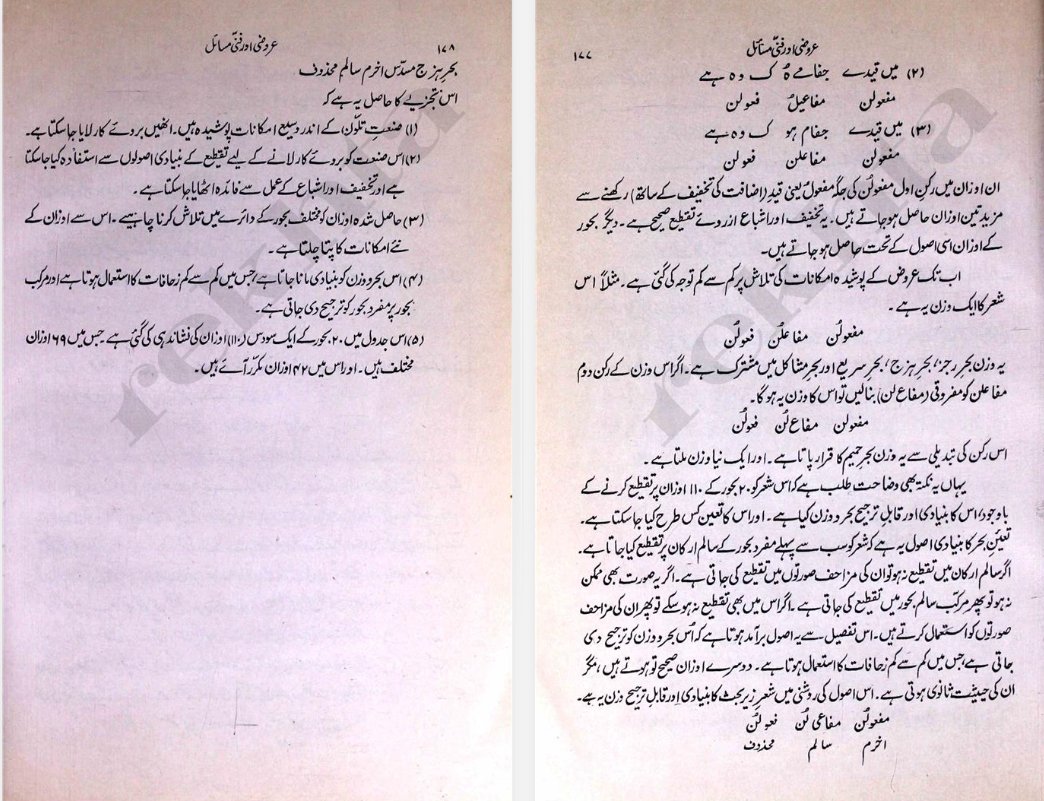 عروضی اور فنی مسائل ۱۷۷
(۲) میں قیدے جفامے ہُ ک وہ ہے
مفعولن مفاعیلُ فعولن
(۳) میں قیدے جفام ہو ک وہ ہے
مفعولن مفاعلن فعولن
ان اوزان میں رکن اول مفعولن کی جگہ مفعولُ یعنی قیدِ (اضافت کی تخفیف کے ساتھ) رکھنے سے
مزید تین اوزان حاصل ہو جاتے ہیں۔ یہ تخفیف اور اشباع از روئے تقطیع صحیح ہے۔ دیگر بحور
کے اوزان اسی اصول کے تحت حاصل ہو جاتے ہیں۔
اب تک عروض کے پوشیدہ امکانات کی تلاش پر کم سے کم توجہ کی گئی ہے۔ مثلاً اس
شعر کا ایک وزن یہ ہے۔
مفعولُن مفاعلُن فعولُن
یہ وزن بحرِ رجز، بحرِ ہزج، بحرِ سریع اور بحرِ مشاکل میں مشترک ہے۔ اگر اس وزن کے رکن دوم
مفاعلن کو مفروقی (مفاع لن) بنالیں تو اس کا وزن یہ ہوگا۔
مفعولن مفاع لُن فعولُن
اس رکن کی تبدیلی سے یہ وزن بحرِ حمیم کا قرار پاتا ہے۔ اور ایک نیا وزن ملتا ہے۔
یہاں یہ نکتہ بھی وضاحت طلب ہے کہ اس شعر کو ۲۰ بحور کے ۱۱۰ اوزان پر تقطیع کرنے کے
باوجود اس کا بنیادی اور قابلِ ترجیح بحر و وزن کیا ہے۔ اور اس کا تعین کس طرح کیا جا سکتا ہے۔
تعیّنِ بحر کا بنیادی اصول یہ ہے کہ شعر کو سب سے پہلے مفرد بحور کے سالم ارکان پر تقطیع کیا جاتا ہے۔
اگر سالم ارکان میں تقطیع نہ ہو تو ان کی مزاحف صورتوں میں تقطیع کی جاتی ہے۔ اگر یہ صورت بھی ممکن
نہ ہو تو پھر مرکّب سالم بحور میں تقطیع کی جاتی ہے۔ اگر اس میں بھی تقطیع نہ ہو سکے تو پھر ان کی مزاحف
صورتوں کو استعمال کرتے ہیں۔ اس تفصیل سے یہ اصول برآمد ہوتا ہے کہ اُس بحر و وزن کو ترجیح دی
جاتی ہے جس میں کم سے کم زحافات کا استعمال ہوتا ہے۔ دوسرے اوزان صحیح تو ہوتے ہیں، مگر
ان کی حیثیت ثانوی ہوتی ہے۔ اس اصول کی روشنی میں شعر زیر بحث کا بنیادی اور قابلِ ترجیح وزن یہ ہے۔
مفعولُن مفاعی لُن فعولُن
اخرم سالم محذوف
۱۷۸ عروضی اور فنی مسائل
بحرِ ہزج مسدّس اخرم سالم محذوف
اس تجزیے کا حاصل یہ ہے کہ
(۱) صنعتِ تلوّن کے اندر وسیع امکانات پوشیدہ ہیں۔ انھیں بروئے کار لایا جا سکتا ہے۔
(۲) اس صنعت کو بروئے کار لانے کے لیے تقطیع کے بنیادی اصولوں سے استفادہ کیا جا سکتا
ہے اور تخفیف اور اشباع کے عمل سے فائدہ اٹھایا جا سکتا ہے۔
(۳) حاصل شدہ اوزان کو مختلف بحور کے دائرے میں تلاش کرنا چاہیے۔ اس سے اوزان کے
نئے امکانات کا پتا چلتا ہے۔
(۴) اس بحر و وزن کو بنیادی مانا جاتا ہے، جس میں کم سے کم زحافات کا استعمال ہوتا ہے اور مرکب
بحور پر مفرد بحور کو ترجیح دی جاتی ہے۔
(۵) اس جدول میں ۲۰ بحور کے ایک سو دس (۱۱۰) اوزان کی نشاندہی کی گئی ہے۔ جس میں ۶۹ اوزان
مختلف ہیں۔ اور اس میں ۴۲ اوزان مکرّر آئے ہیں۔
rekhta
rekhta